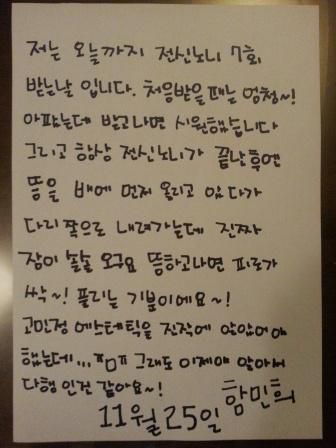 저는 오늘까지 전신노니 7회
받는날 입니다. 처음받을때는 엄청~!
아팠는데 받고나면 시원했습니다
그리고 항상 전신노니가 끝난후엔
뜸을 배에 먼저 올리고 있다가
다리쪽으로 내려가는데 진짜
잠이 솔솔 오구요 뜸하고나면 피로가
싹~! 풀리는 기분이에요~!
고민정 에스테틱을 진작에 알았어야
했는데... ㅠㅁㅠ 그래도 이제야 알아서
다행인것 같아요~!
11월 25일 함민희